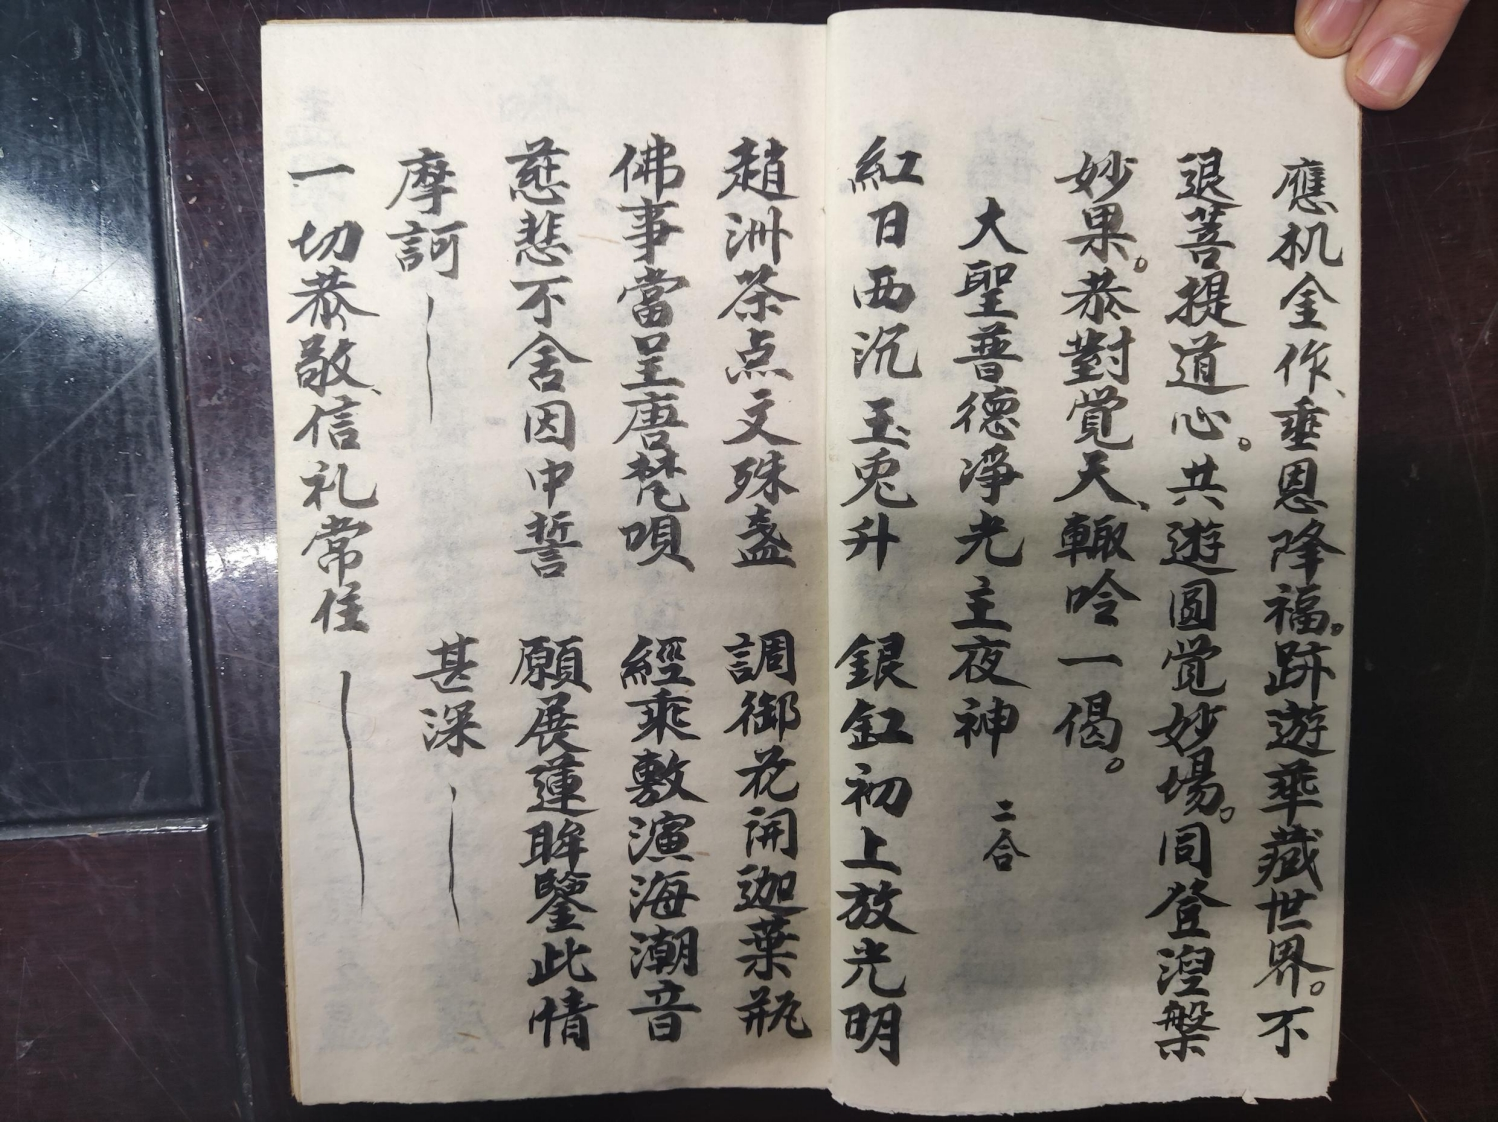 應机全作、垂恩降福。跡遊華藏世界。不
退菩提道心。共遊圓覺妙場。同登涅槃
妙果。恭對覺天、輙吟一偈。
大聖普德淨光主夜神 二合
紅日西沉玉兎升 銀釭初上放光明
趙州茶点文殊盞 調御花開迦葉瓶
佛事當呈唐梵唄 經乘敷演海潮音
慈悲不舍因中誓 願展蓮眸鑒此情
摩訶 甚深
一切恭敬、信礼常住